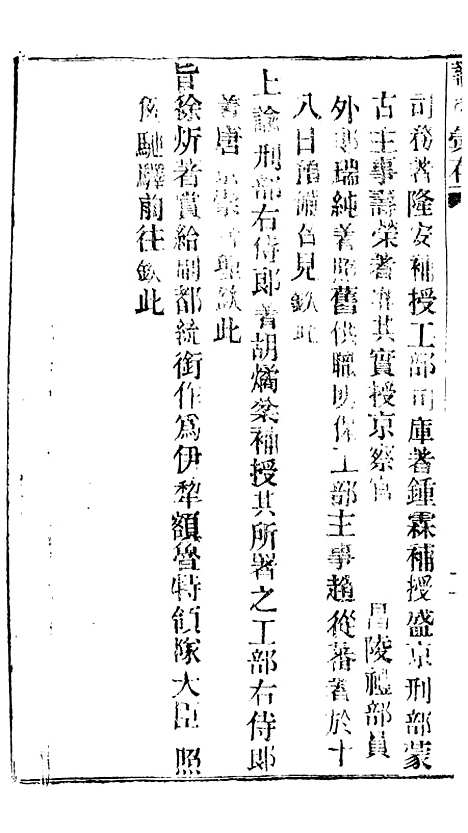 司務著隆安補授工部司庫著鍾霖補授盛京刑部蒙
古主事壽榮著准其實授京察官 昌陵禮部員
外郎瑞純著照舊供職明保工部主事趙從蕃著於十
八日預備召見欽此
上諭刑部右侍郎著胡燏棻補授其所署之工部右侍郎
著唐景崇署理欽此
旨徐炘著賞給副都統銜作為伊犂額魯特領隊大臣照
例馳驛前往欽此